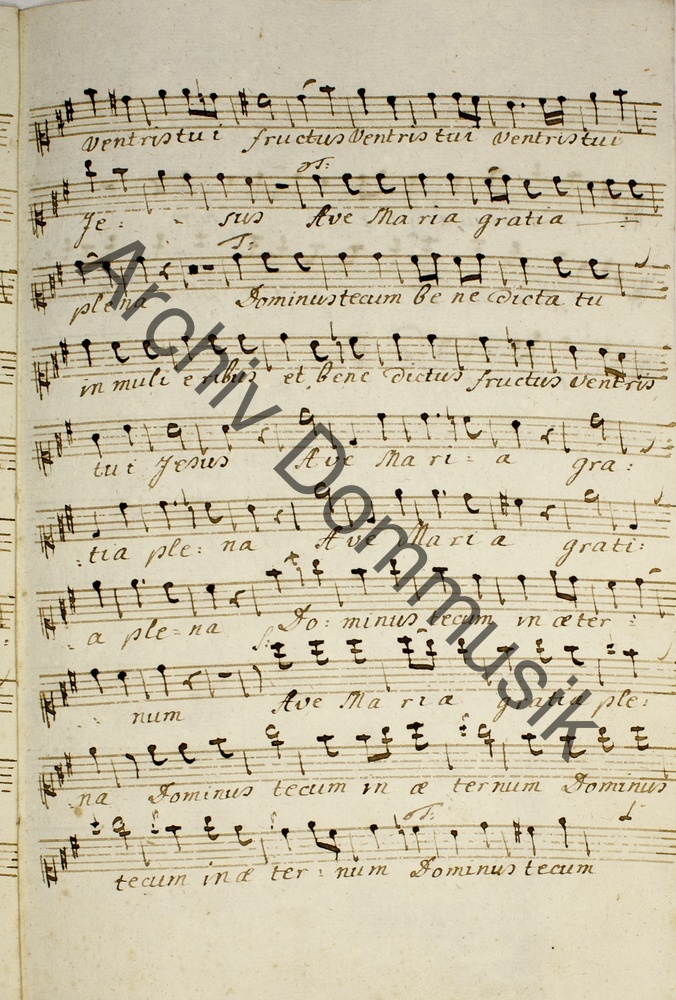 ventris tui fructus ventris tui ventris tui
Je - sus Ave Maria gratia
plena Dominus tecum be ne dicta tu
in muli eribus et bene dictus fructus ventris
tui Jesus Ave Mari - a gra:
:tia ple: na Ave Maria grati:
:a ple=na Do: minus tecum in æter:
num Ave Maria gratia ple:
:na Dominus tecum in æ ternum Dominus
tecum in æ ter: num Dominus tecum
Archiv Dommusik